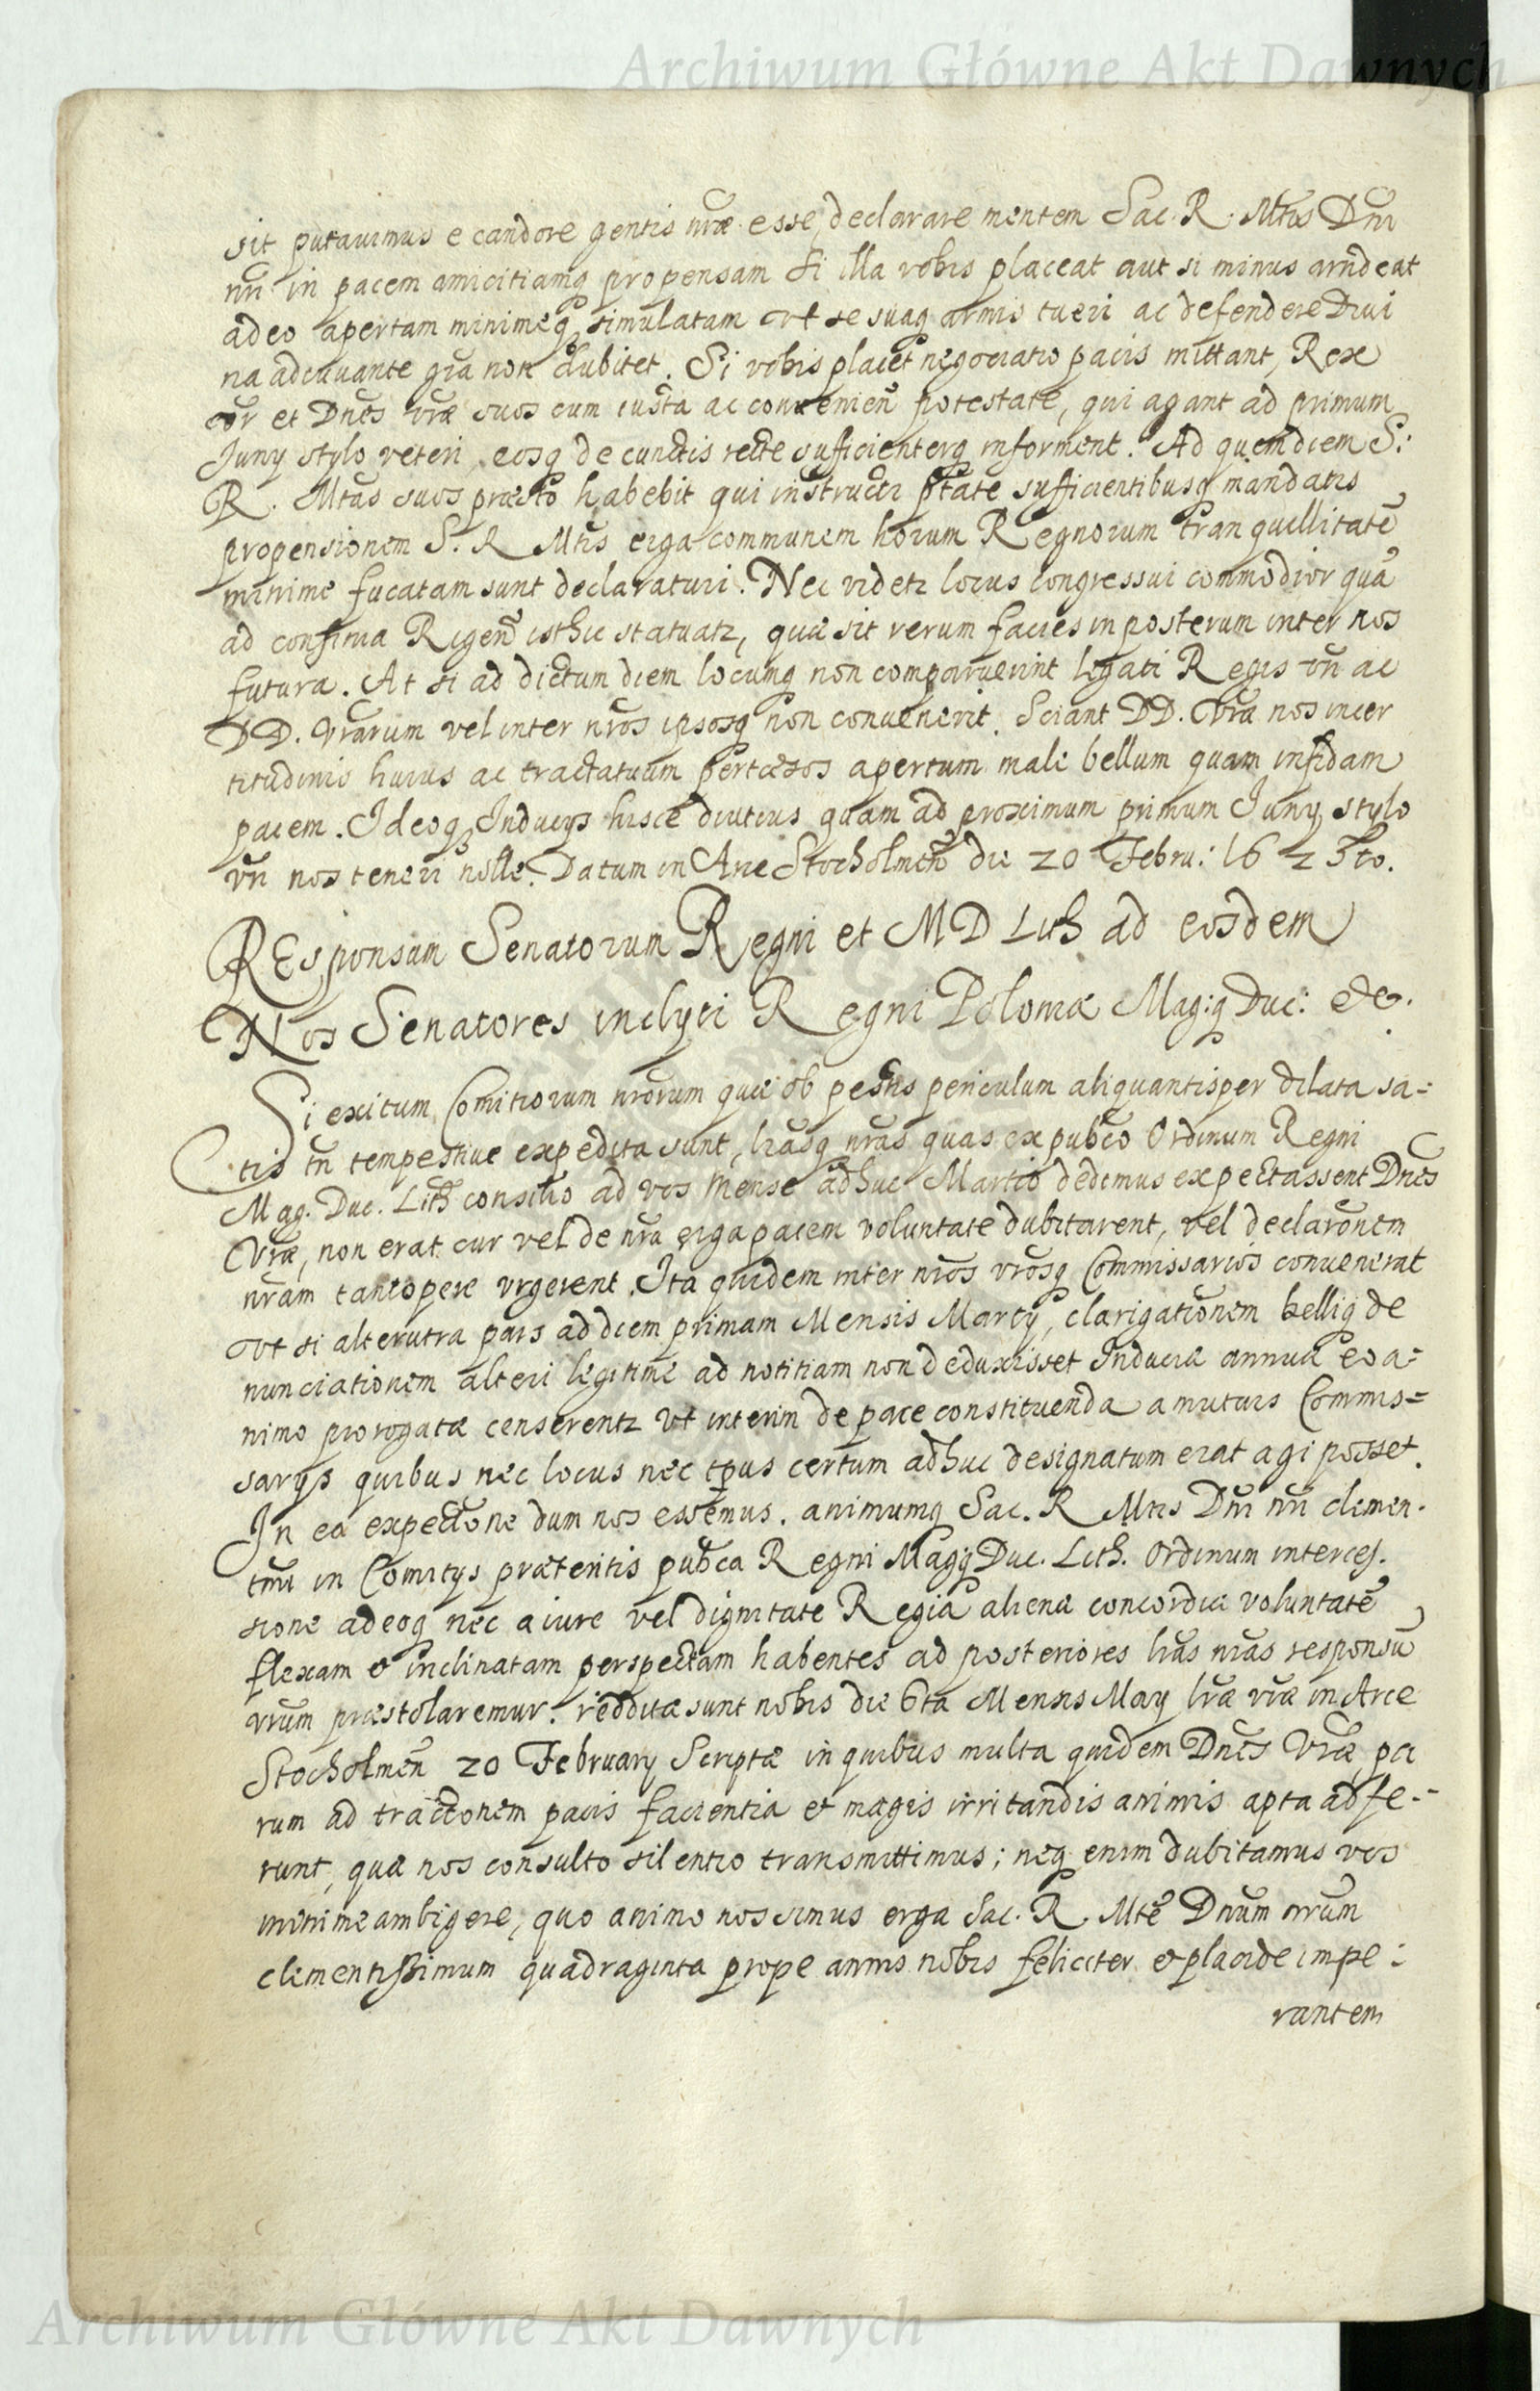 Archiwum Główne Akt Dawnych
sit putauimus e candore gentis nr̃æ esse, declarare mentem Sac. R. Mtis Dni
nri in pacem amicitiamq propensam si illa vobis placeat aut si minus arrideat
adeo apertam minimeq simulatam vt se suaq armis tueri ac defendere Diui
na adiuuante gr̃a non dubitet. Si vobis placet negociatio pacis mittant, Rex
et Dnes vræ suos cum iusta ac conueniẽn potestate, qui agant ad primum
Juny stylo veteri, eosq de cunctis recte sufficienterq informent. Ad quem diem S:
R. Mtas suos præsto habebit qui instructi ptate sufficientibusq mandatis
propensionem S. R Mtis erga communem horum Regnorum tranquillitatẽ
minime fucatam sunt declaraturi. Nec videtr locus congressui commodior quã
ad confinia Rigeñ isthic statuatr, quæ sit rerum facies in posterum inter nos
futura. At si ad dictum diem locumq non comparuerint legati Regis vr̃i ac
DD. Vrarum vel inter nros ipsosq non conuenerit. Sciant DD. Vræ nos incer
titudinis huius ac tractatuum pertæsos apertum malle bellum quam infidam
pacem. Ideoq Inducys hisce diutius quam ad proximum primum Juny stylo
vr̃i nos teneri nolle. Datum in Arce Stocholmeñ die 20 Febru: 1625to.
REsponsum Senatorum Regni et MD Lith ad eosdem
Nos Senatores inclyti Regni Poloniæ Mag:q Duc: etc.
Si exitum Comitiorum nrorum quæ ob pestis periculum aliquantisper dilata sa=
tis tñ tempestiue expedita sunt, lrasq nras quas ex pubco Ordinum Regni
Mag. Duc. Lith consilio ad vos Mense adhuc Martio dedimus expectassent Dnes
Vræ, non erat cur vel de nra erga pacem voluntate dubitarent, vel declaronem
nram tantopere vrgerent. Ita quidem inter nros vrosq Commissarios conuenerat
vt si alterutra pars ad diem primam Mensis Marty, clarigationem belliq de
nunciationem alteri legitime ad notitiam non deduxisset Induciæ annuæ eo a=
nimo prorogatæ censerentr vt interim de pace constituenda a mutuis Commis=
sarys quibus nec locus nec tpus certum adhuc designatum erat agi posset.
In ea expectone dum nos essemus. animumq Sac. R Mtis Dni nri clemen.
tmi in Comitys præteritis pubca Regni Magq Duc. Lith. Ordinum interces.
sione adeoq nec a iure vel dignitate Regia aliena concordiæ voluntatẽ
flexam et inclinatam perspectam habentes ad posteriores lras nras responsũ
vrum præstolaremur. redditæ sunt nobis die 6ta Mensis May lræ vræ in Arce
Stocholmeñ 20 February Scriptæ in quibus multa quidem Dnes Vræ pa
rum ad tractonem pacis facientia et magis irritandis animis apta adfe=
runt, quæ nos consulto silentio transmittimus; neq enim dubitamus vos
minime ambigere, quo animo nos simus erga Sac. R. Mtẽ Dnum nrum
clementissimum quadraginta prope annis nobis feliciter et placide impe:
rantem
Archiwum Główne Akt Dawnych